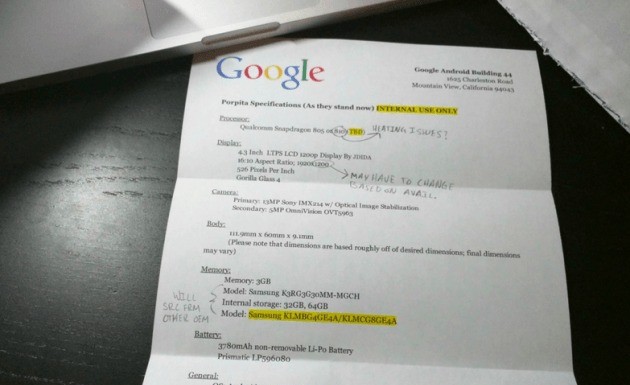 Google
Google Android Building 44
1625 Charleston Road
Mountain View, California 94043
Porpita Specifications (As they stand now) INTERNAL USE ONLY
Processor:
Qualcomm Snapdragon 805 or 810 TBD
HEATING ISSUES?
Display:
4.3 Inch LTPS LCD 1200p Display By JDIDA
16:10 Aspect Ratio, 1920x1200
526 Pixels Per Inch
MAY HAVE TO CHANGE
BASED ON AVAIL.
Gorilla Glass 4
Camera:
Primary: 13MP Sony IMX214 w/ Optical Image Stabilization
Secondary: 5MP OmniVision OVT5963
Body:
111.9mm x 60mm x 9.1mm
(Please note that dimensions are based roughly off of desired dimensions; final dimensions
may vary)
Memory:
Memory: 3GB
Model: Samsung K3RG3G30MM-MGCH
Internal storage: 32GB, 64GB
Model: Samsung KLMBG4GE4A/KLMCG8GE4A
WILL
SRC FRM
OTHER OEM
Battery:
3780mAh non-removable Li-Po Battery
Prismatic LP596080
General: